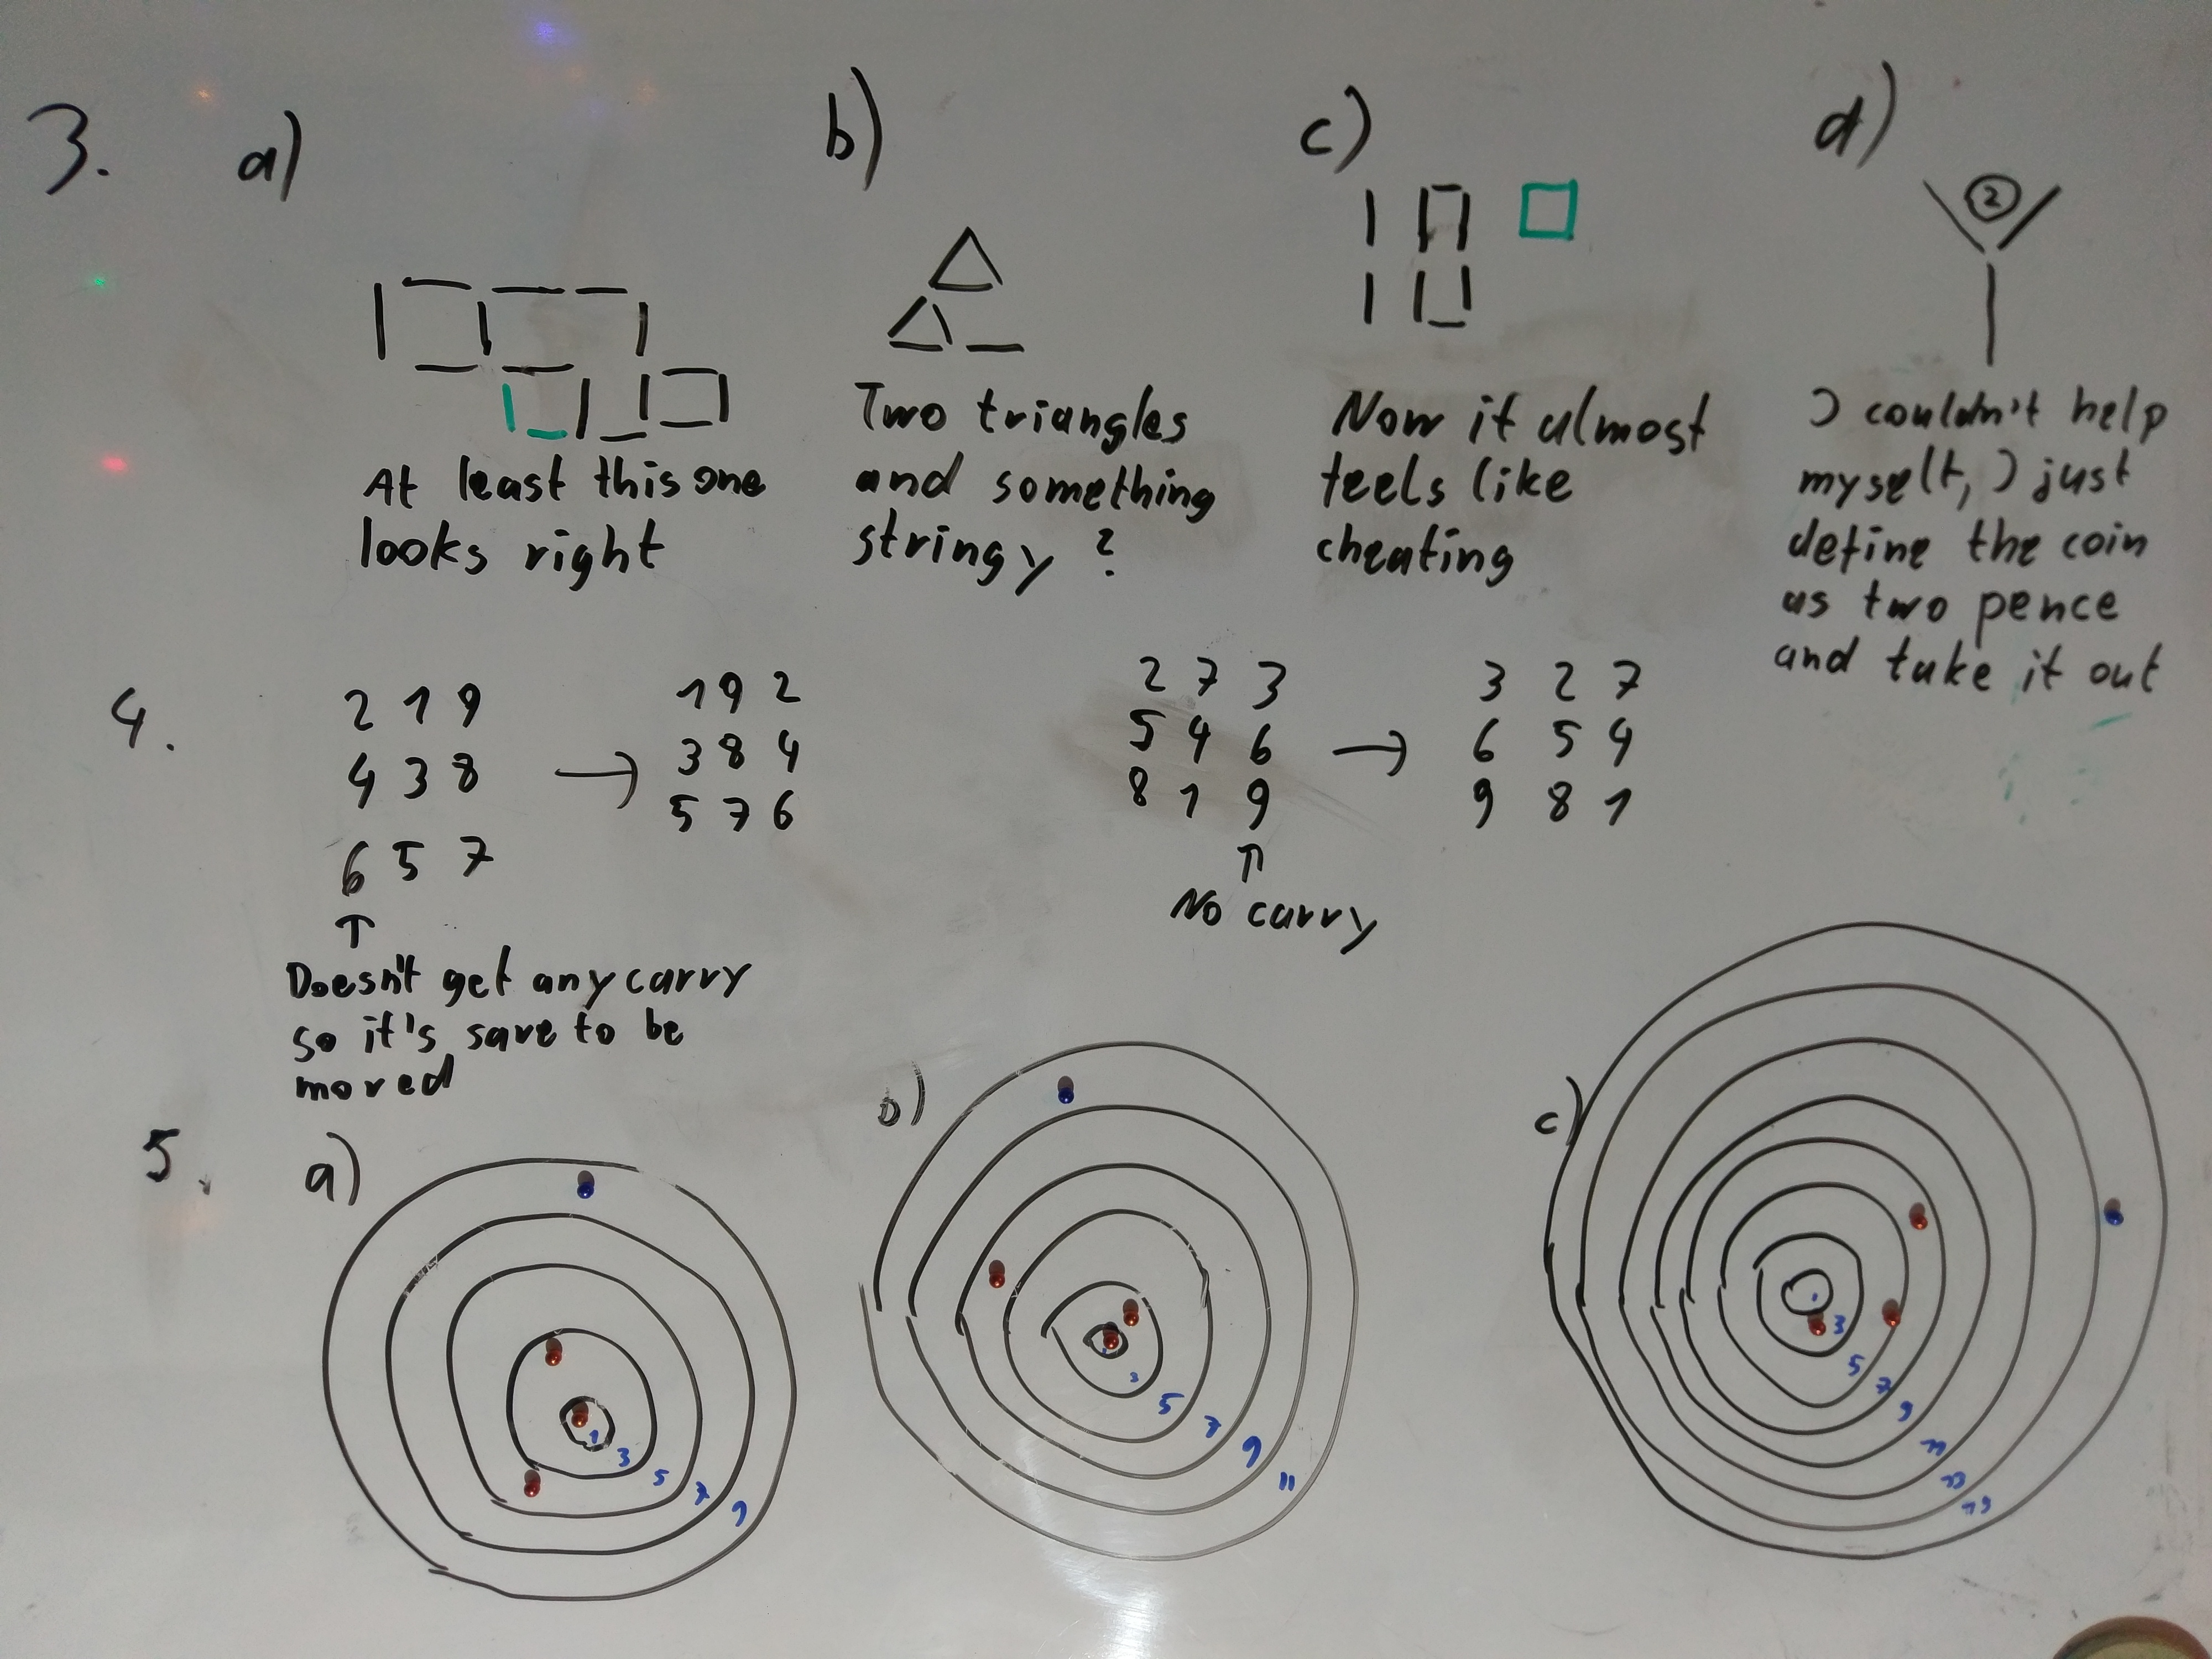 3. a) b) c) d)
2
At least this one
looks right
Two triangles
and something
stringy ?
Now it almost
feels like
cheating
I couldn't help
myself, I just
define the coin
as two pence
and take it out
4.
2 1 9
4 3 8
6 5 7
→
1 9 2
3 8 4
5 7 6
↑
Doesn't get any carry
so it's save to be
moved
2 7 3
5 4 6
8 1 9
→
3 2 7
6 5 4
9 8 1
↑
No carry
5. a)
1
3
5
7
9
b)
3
5
7
9
11
c)
3
5
7
9